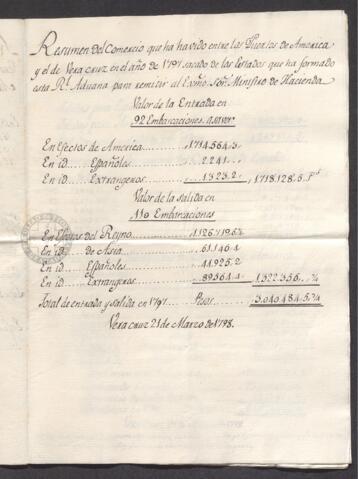 Resumen del Comercio que ha havido entre los Puertos de America
y el de Vera Cruz en el año de 1797 sacado de los Estados que ha formado
esta Rl. Aduana para remitir al Exmo. Sor. Ministro de Hacienda
Valor de la Entrada en
92 Embarcaciones. a saver
En Efectos de America 1.714.564.3
En id. Españoles 2.241.
En id. Extrangeros 1.323.2 1.718.128.5 ps
Valor de la salida en
110 Embarcaciones
En Efectos del Reyno 1.126.719.6¾
En id. de Asia 61.146.4
En id. Españoles 44.925.2
En id. Extrangeros 89.564.4 1.322.356.¾
Total de entrada y salida en 1797 Pesos 3.040.484.5¾
Vera Cruz 21 de Marzo de 1798.